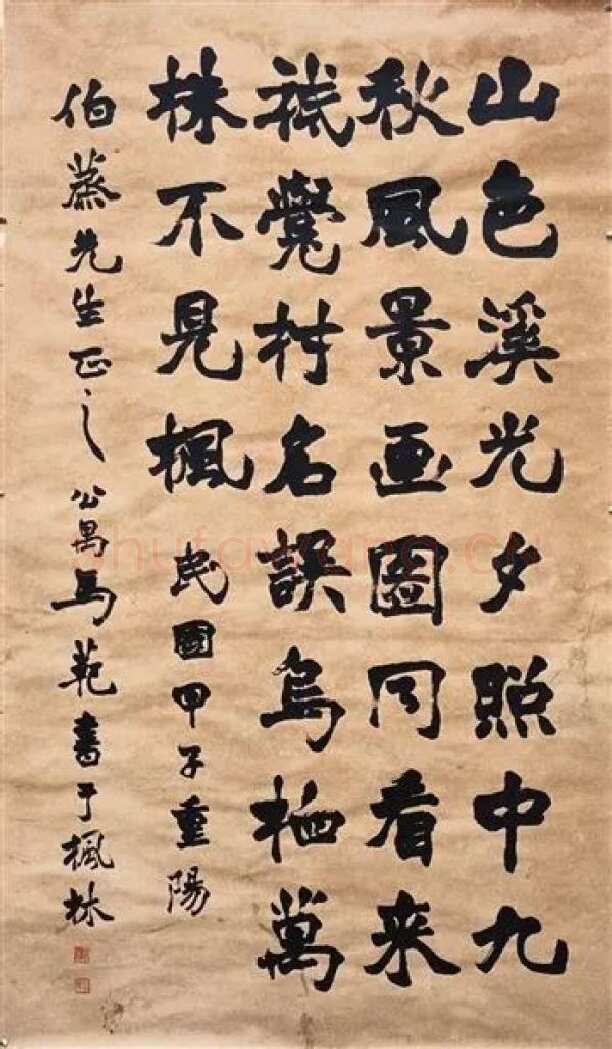 山色溪光夕照中九
秋風景画圖同看来
祗覺村名誤烏栖萬
株不見楓
民國甲子重陽
伯蒸先生正之公禺馬範書于楓林